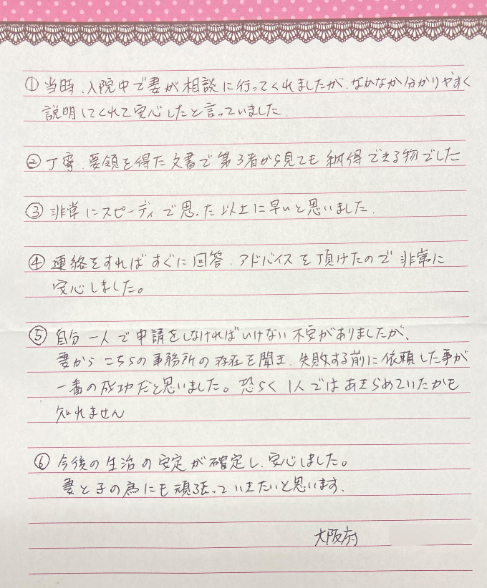 ① 当時、入院中で妻が相談に行ってくれましたが、なかなか分かりやすく
説明してくれて安心したと言っていました
② 丁寧、要領を得た文書で第3者から見ても納得できる物でした
③ 非常にスピーディで思った以上に早いと思いました。
④ 連絡をすればすぐに回答、アドバイスを頂けたので非常に
安心しました。
⑤ 自分一人で申請をしなければいけない不安がありましたが、
妻からこちらの事務所の存在を聞き、失敗する前に依頼した事が
一番の成功だと思いました。恐らく1人ではあきらめていたかも
知れません
⑥ 今後の生活の安定が確定し、安心しました。
妻と子の為にも頑張っていきたいと思います。
大阪府